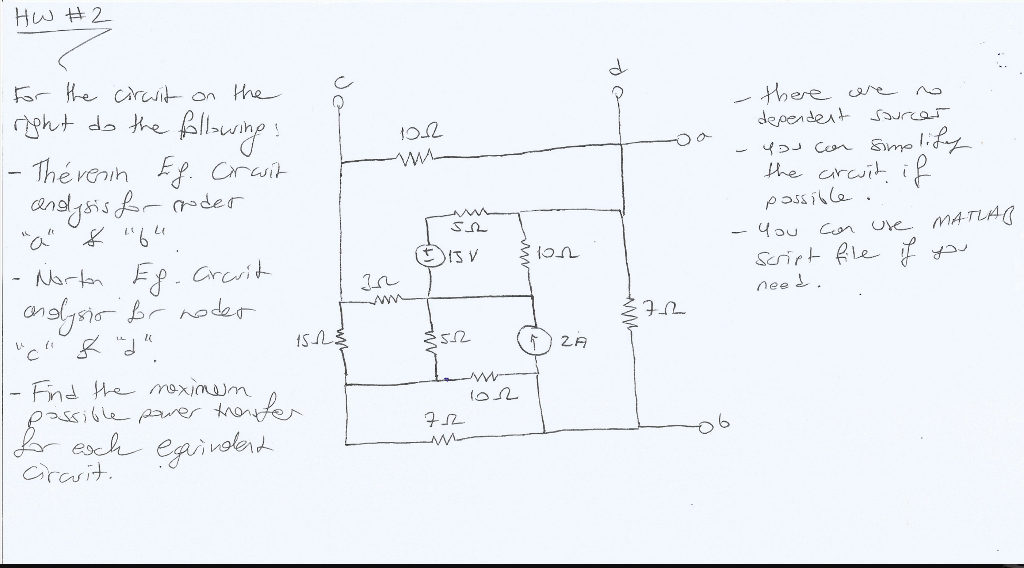 HW #2
For the circuit on the
right do the following:
- Thévenin Eq. Circuit
analysis for nodes
"a" & "b".
- Norton Eq. Circuit
analysis for nodes
"c" & "d".
- Find the maximum
possible power transfer
for each equivalent
circuit.
c
d
10Ω
a
5Ω
15V
10Ω
3Ω
7Ω
15Ω
5Ω
2A
10Ω
7Ω
b
- there are no
dependent sources
- you can simplify
the circuit if
possible.
- you can use MATLAB
script file if you
need.